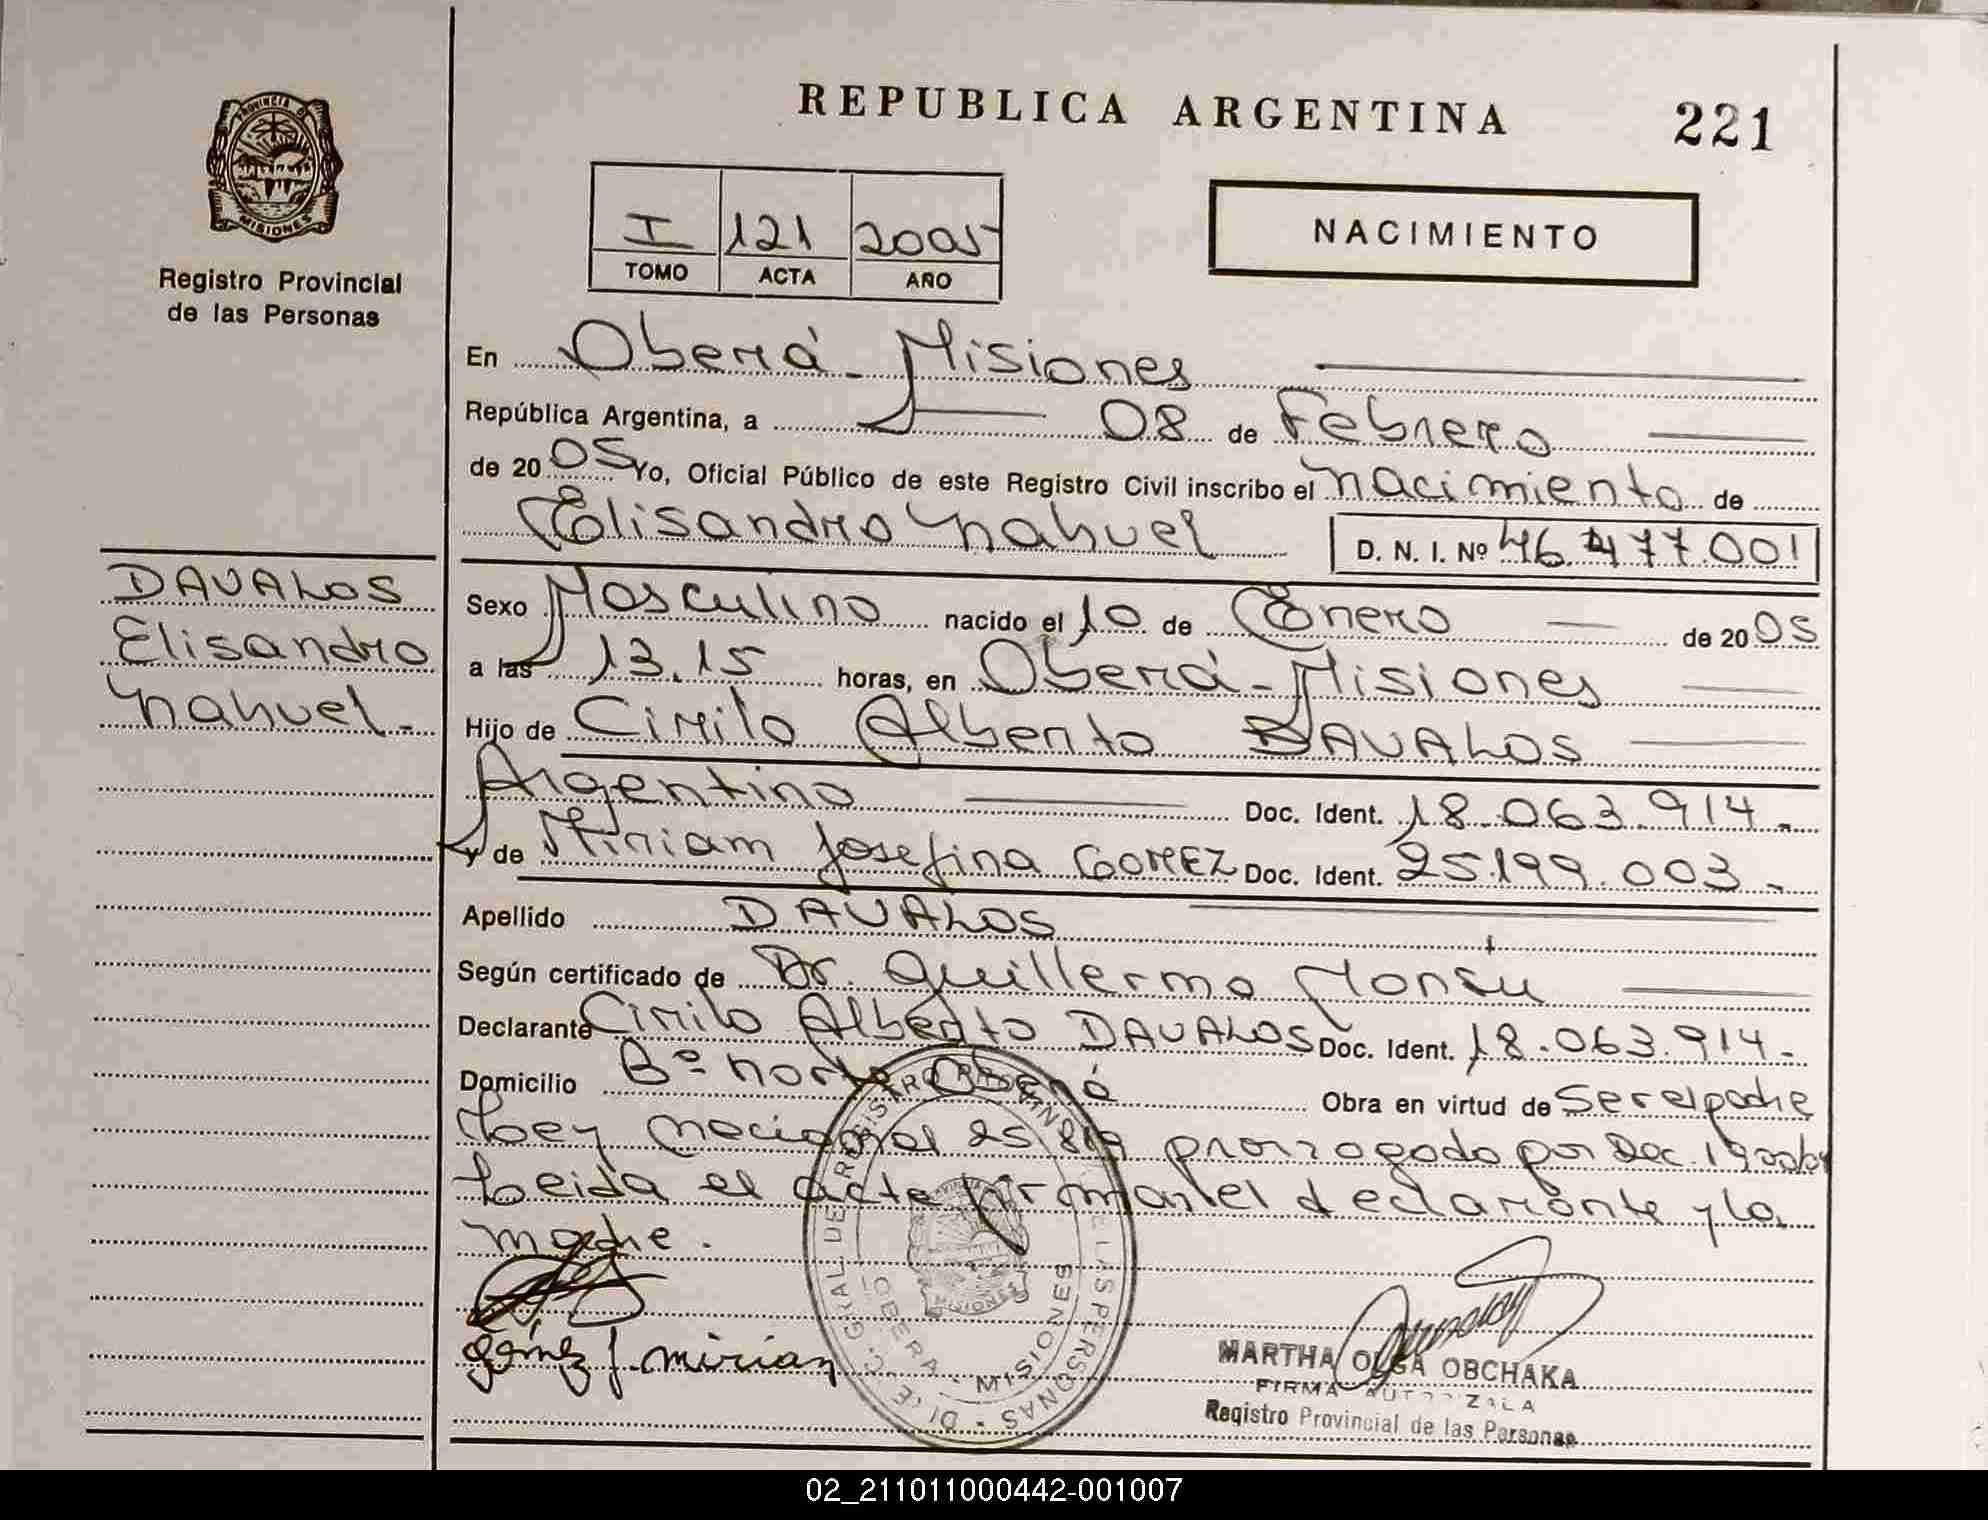 REPUBLICA ARGENTINA
221
PROVINCIA D
MISIONES
Registro Provincial
de las Personas
I 121 2005
TOMO ACTA AÑO
NACIMIENTO
En Oberá - Misiones
República Argentina, a 08 de Febrero
de 20 05 Yo, Oficial Público de este Registro Civil inscribo el nacimiento de
Elisandro Nahuel D. N. I. Nº 46.477.001
DAVALOS
Elisandro
Nahuel.-
Sexo Masculino nacido el 10 de Enero de 20 05
a las 13.15 horas, en Oberá - Misiones
Hijo de Cirilo Alberto DAVALOS
Argentino Doc. Ident. 18.063.914.-
y de Miriam Josefina GOMEZ Doc. Ident. 25.199.003.-
Apellido DAVALOS
Según certificado de Dr. Guillermo
Declarante Cirilo Alberto DAVALOS Doc. Ident. 18.063.914.-
Domicilio Bº Norte Oberá Obra en virtud de Ser el padre
Ley Nacional 25.819 prorrogado por Dec.
Leida el acta firman el declarante y la
madre.
gómez J. mirian
OBERA - MISIONES
MARTHA OLGA OBCHAKA
FIRMA
Registro Provincial de las Personas
02_211011000442-001007